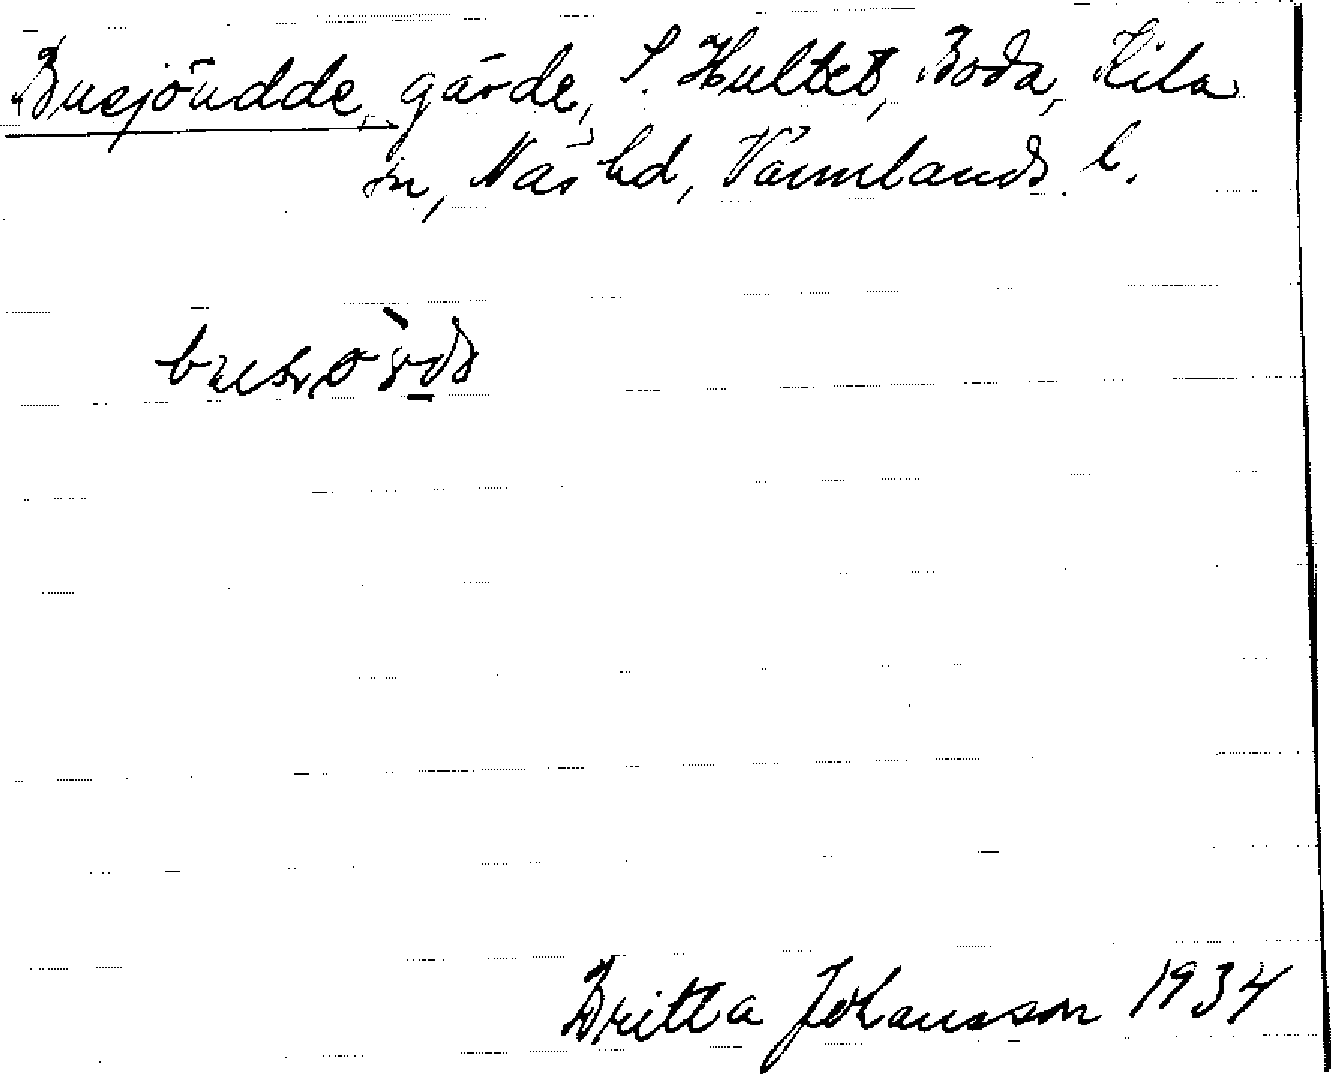 Busjöudde, gärde, S. Hultet, Boda, Kila
sn, Näs hd, Värmlands l.
Britta Johansson 1934